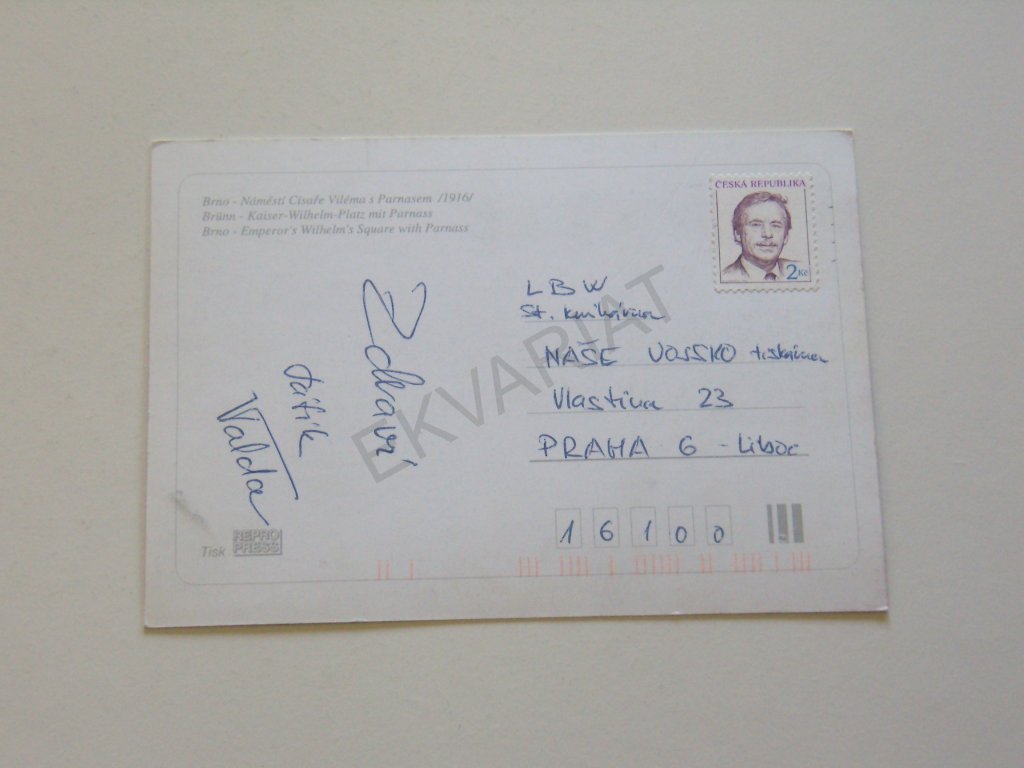 Brno - Náměstí Císaře Viléma s Parnasem /1916/
Brünn - Kaiser-Wilhelm-Platz mit Parnass
Brno - Emperor's Wilhelm's Square with Parnass
ČESKÁ REPUBLIKA
2 Kč
LBW
St. knihárna
NAŠE VOJSKO tiskárna
Vlastina 23
PRAHA 6 - Liboc
16100
Zdraví
taťík
Valda
Tisk REPRO PRESS
EKVARIAT